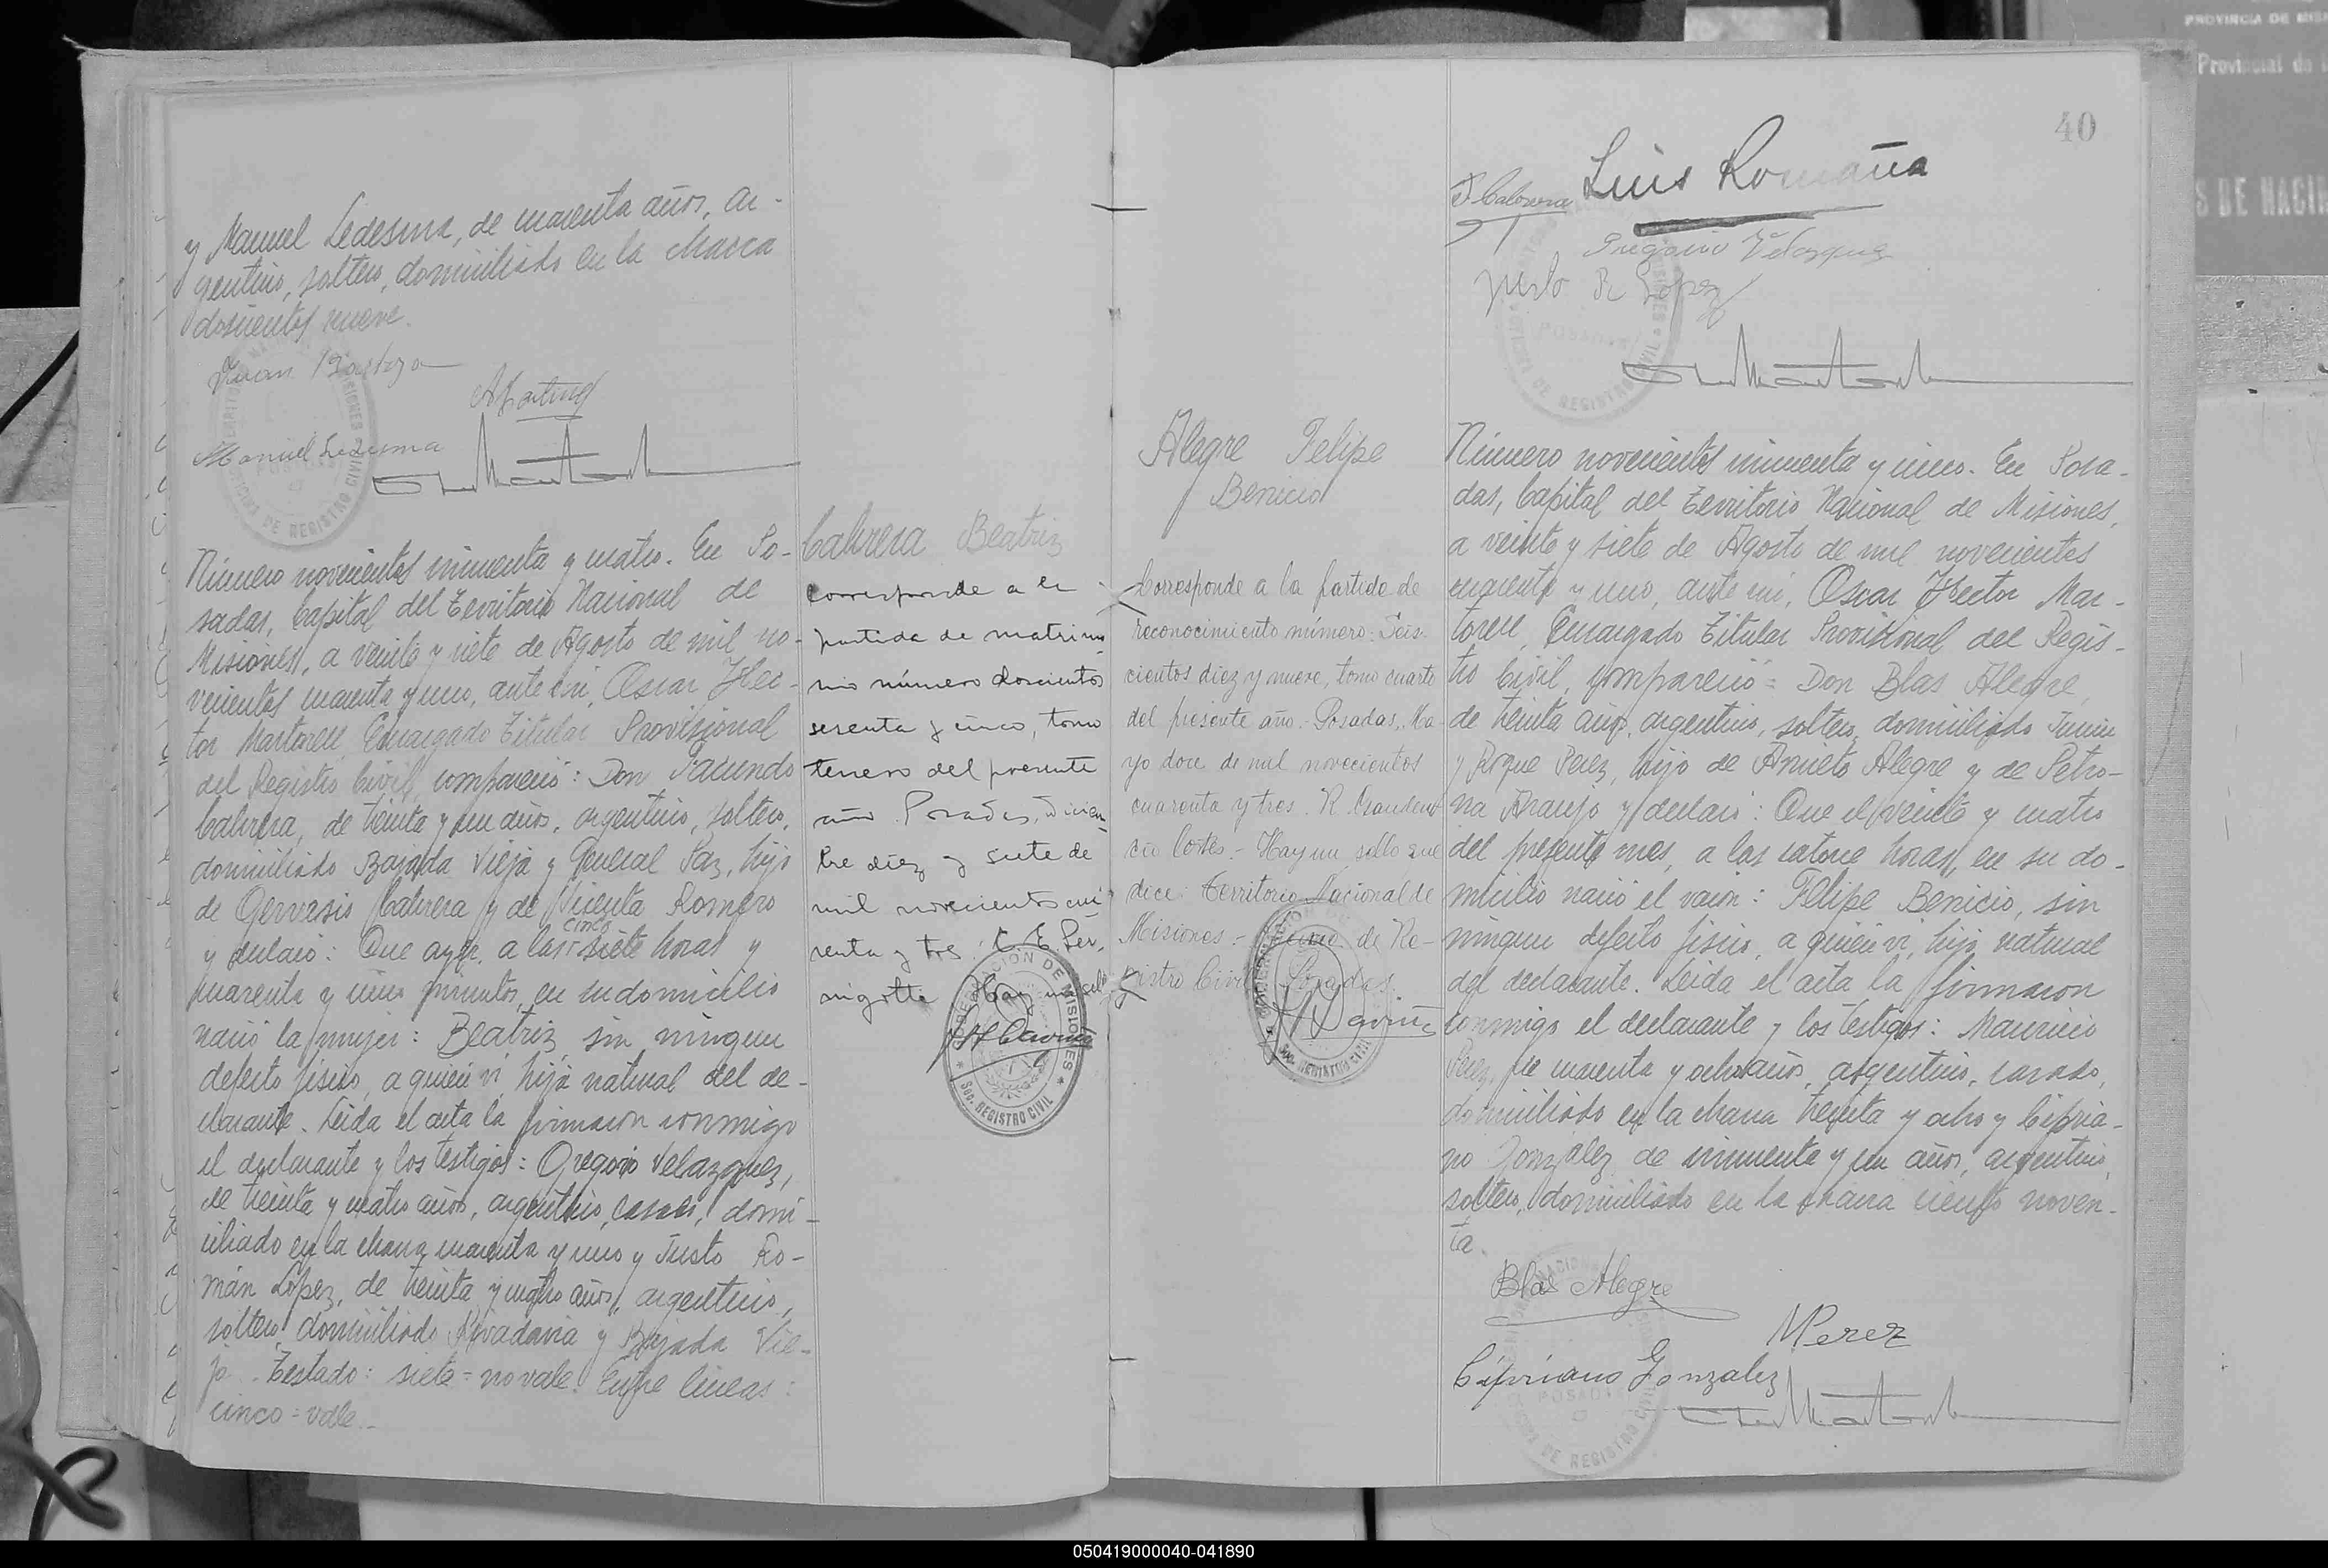 y Manuel Ledesma, de cuarenta años, ar-
gentino, soltero, domiciliado en la chacra
doscientos nueve.
Juan
Manuel Ledesma
Número novecientos cincuenta y cuatro. En Po-
sadas, Capital del Territorio Nacional de
Misiones, a veinte y siete de Agosto de mil no-
vecientos cuarenta y uno, ante mi, Oscar Hec-
tor Martorell Encargado Titular Provisional
del Registro Civil, compareció: Don Facundo
Cabrera, de treinta y un años, argentino, soltero,
domiciliado Bajada Vieja y General Paz, hijo
de Gervasio Cabrera y de Vicenta Romero
cinco
y declaró: Que ayer, a las siete horas y
cuarenta y cinco minutos, en su domicilio
nació la mujer: Beatriz, sin ningun
defecto fisico, a quien vi, hija natural del de-
clarante. Leida el acta la firmaron conmigo
el declarante y los testigos: Gregorio Velazquez,
de treinta y cuatro años, argentino, casado, domi-
ciliado en la chacra cuarenta y uno y Justo Ro-
mán López, de treinta y cuatro años, argentino,
soltero, domiciliado Rivadavia y Bajada Vie-
ja. Testado: siete = no vale. Entre lineas:
cinco = vale.
Cabrera Beatriz
Corresponde a la
partida de matrimo
nio número doscientos
sesenta y cinco, tomo
tercero del presente
año. Posadas, Diciem
bre diez y siete de
mil novecientos cua
renta y tres.
Hay un sello
GOBERNACION DE MISIONES
Sec. REGISTRO CIVIL
40
F Cabrera
Luis Romaña
Gregorio Velazquez
Justo R Lopez
POSADAS
REGISTRO CIVIL
Alegre Felipe
Benicio
Corresponde a la partida de
reconocimiento número: Seis-
cientos diez y nueve, tomo cuarto
del presente año.- Posadas, Ma
yo doce de mil novecientos
cuarenta y tres. R.
Cortés.- Hay un sello que
dice: Territorio Nacional de
Misiones.- de Re-
gistro Civil Posadas.
Número novecientos cincuenta y cinco. En Posa-
das, Capital del Territorio Nacional de Misiones,
a veinte y siete de Agosto de mil novecientos
cuarenta y uno, ante mi, Oscar Hector Mar-
torell, Encargado Titular Provisional del Regis-
tro Civil, compareció = Don Blas Alegre,
de treinta años, argentino, soltero, domiciliado Junin
y Roque Perez, hijo de Aniceto Alegre y de Petro-
na Araujo y declaró: Que el veinte y cuatro
del presente mes, a las catorce horas, en su do-
micilio nació el varón: Felipe Benicio, sin
ningun defecto fisico, a quien vi, hijo natural
del declarante. Leida el acta la firmaron
conmigo el declarante y los testigos: Mauricio
Perez, de cuarenta y ocho años, argentino, casado,
domiciliado en la chacra treinta y ocho y Cipria-
no Gonzalez de cincuenta y un años, argentino,
soltero, domiciliado en la chacra ciento noven-
ta.
Blas Alegre
M Perez
Cipriano Gonzalez
050419000040-041890